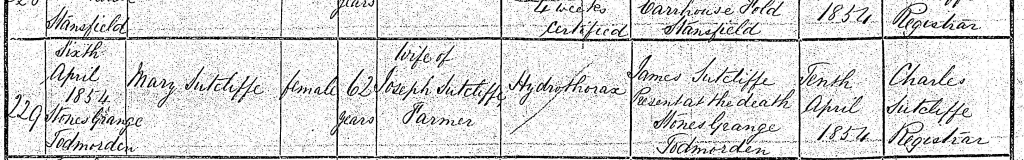 Stansfield
years
4 weeks
Certified
Carrhouse Fold
Stansfield
1854
Registrar
229
Sixth
April
1854
Stones Grange
Todmorden
Mary Sutcliffe
female
62
years
Wife of
Joseph Sutcliffe
Farmer
Hydrothorax
James Sutcliffe
Present at the death
Stones Grange
Todmorden
Tenth
April
1854
Charles
Sutcliffe
Registrar